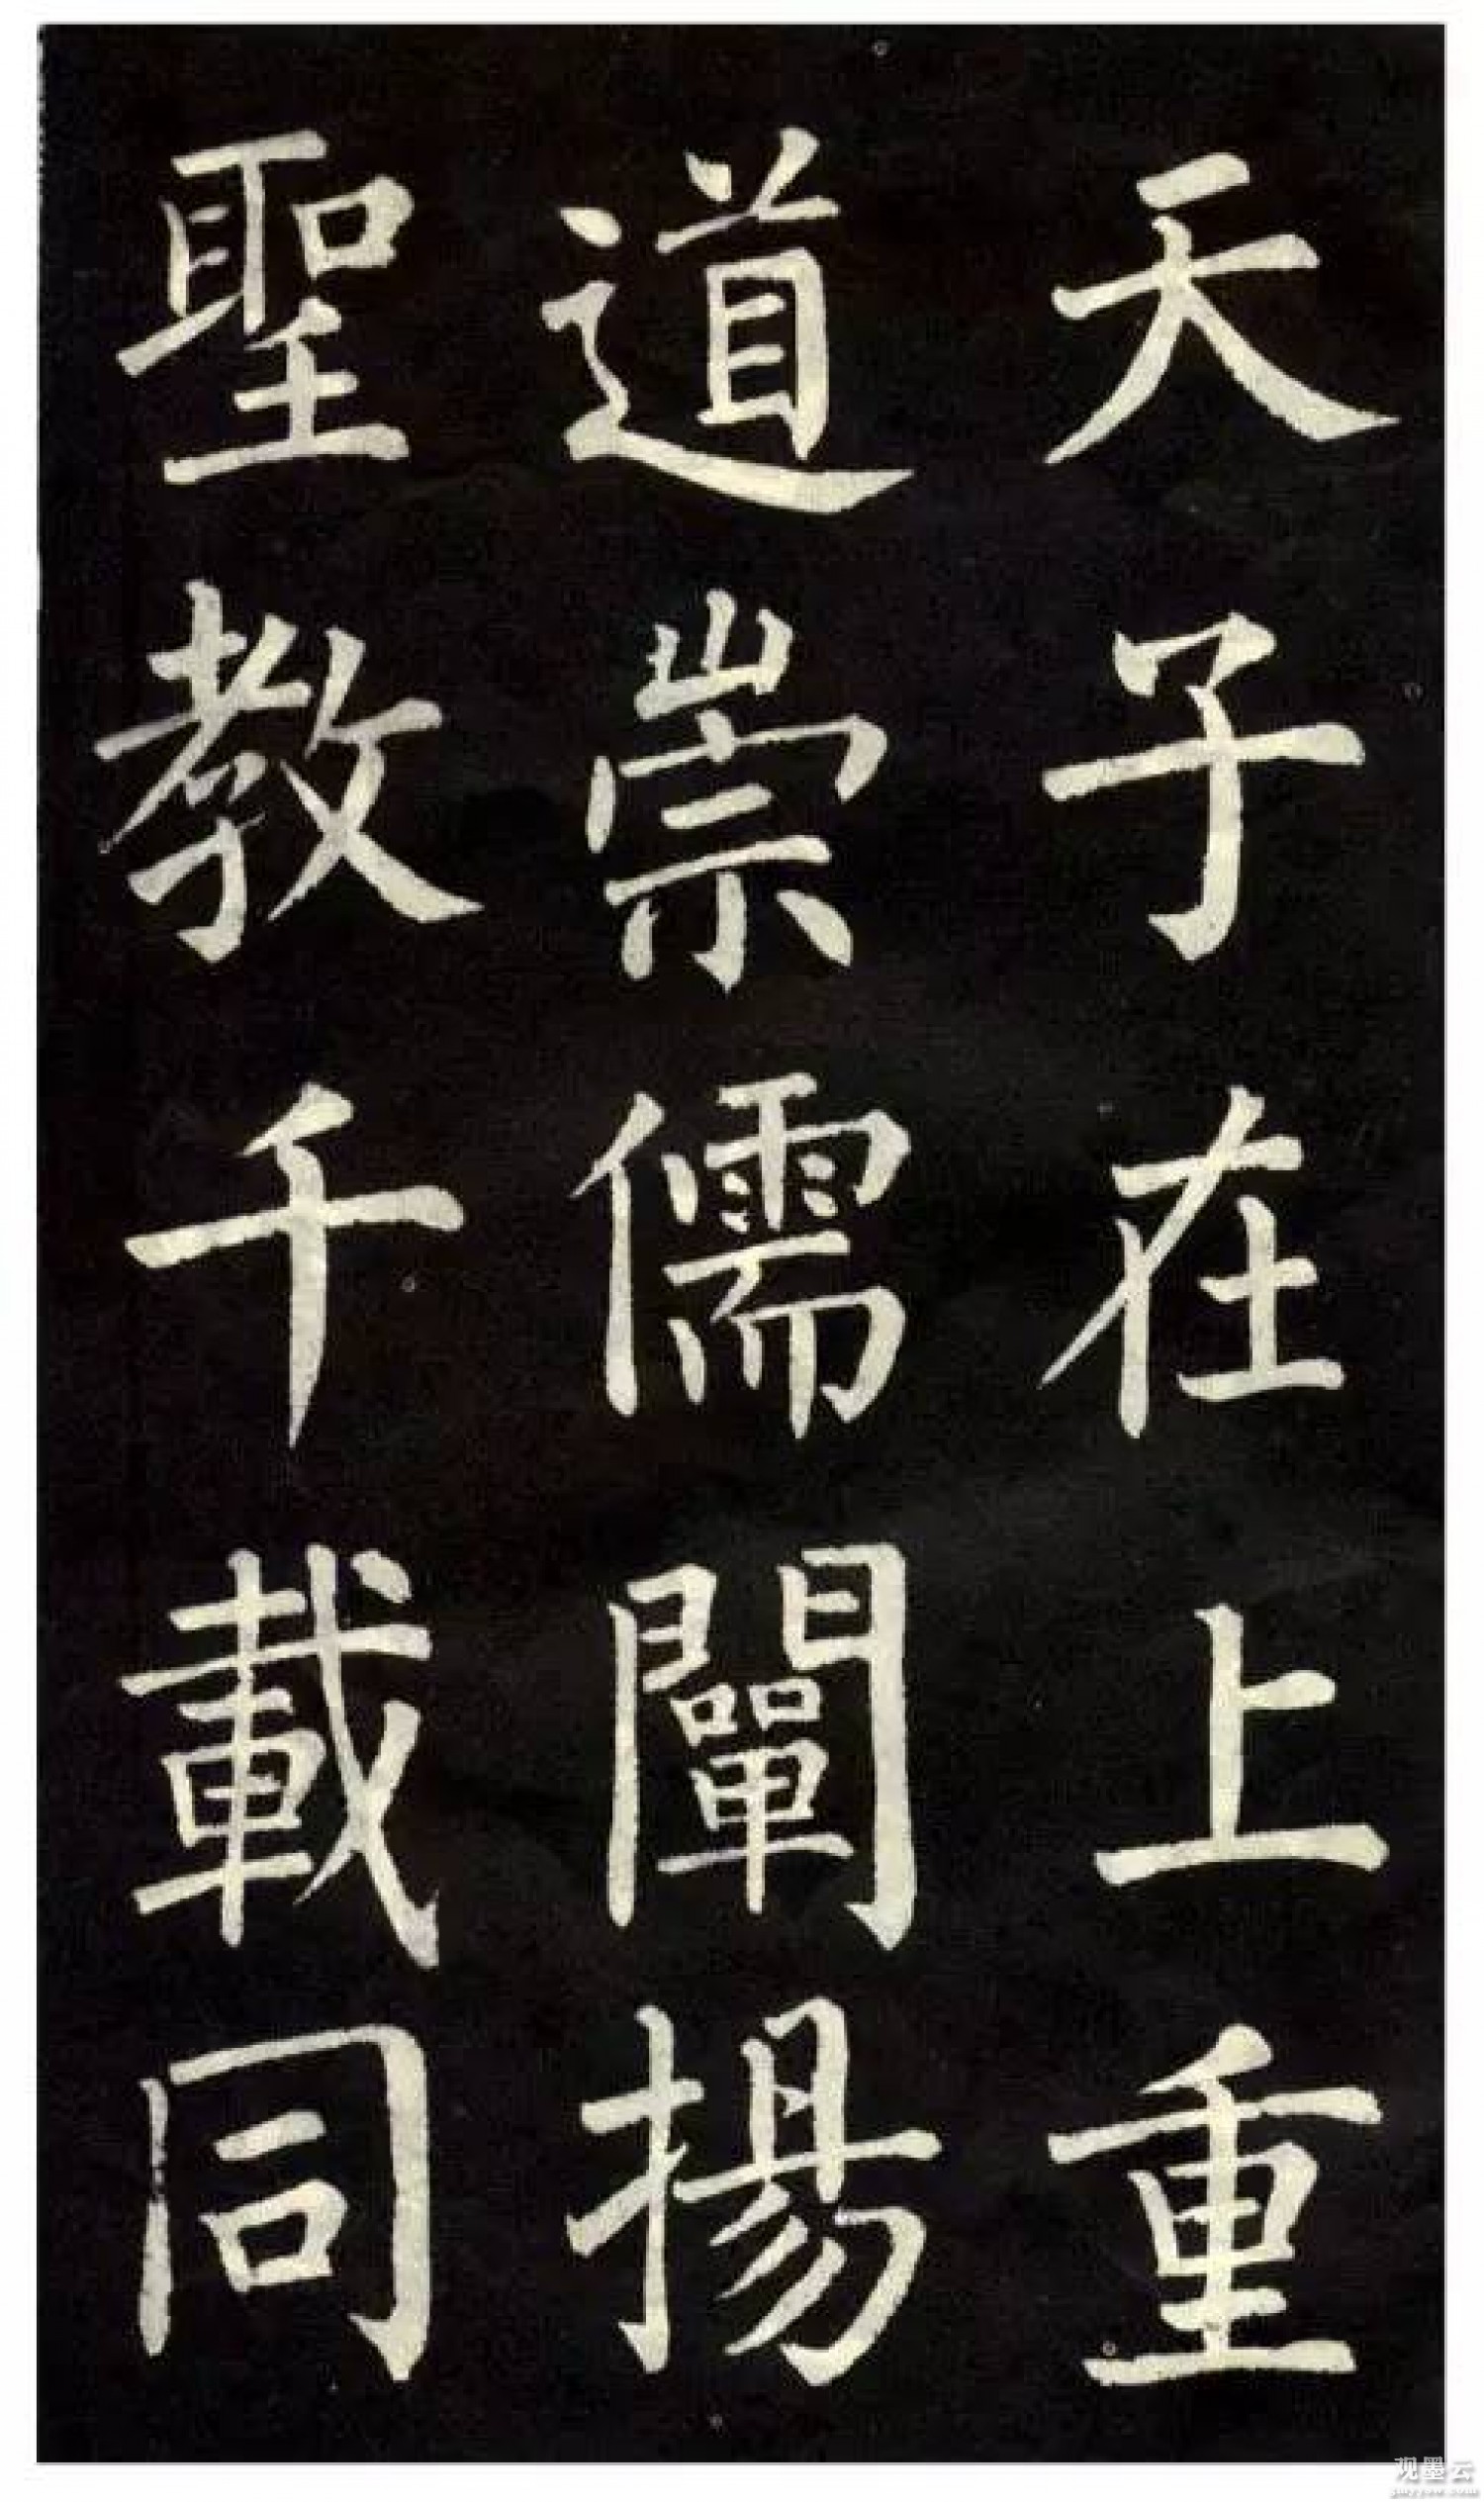 天子在上重
道崇儒闡揚
聖教千載同
观墨云